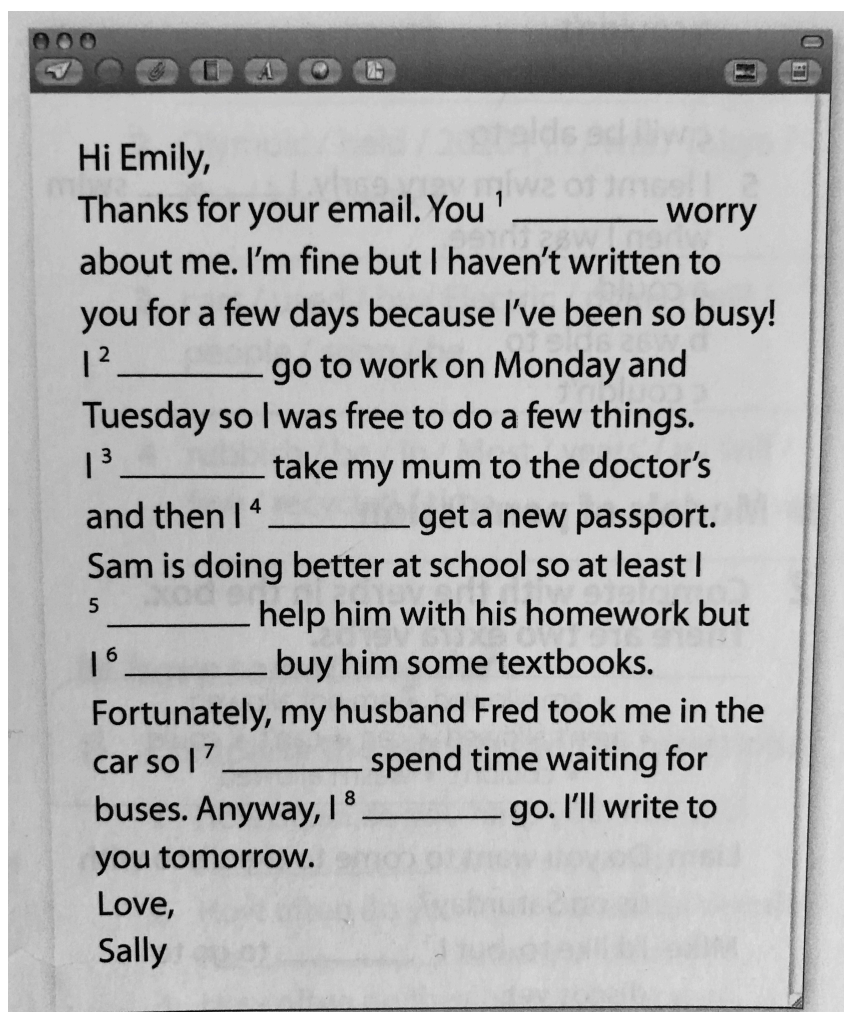 Hi Emily,
Thanks for your email. You 1 __________ worry
about me. I'm fine but I haven't written to
you for a few days because I've been so busy!
I 2 __________ go to work on Monday and
Tuesday so I was free to do a few things.
I 3 __________ take my mum to the doctor's
and then I 4 __________ get a new passport.
Sam is doing better at school so at least I
5 __________ help him with his homework but
I 6 __________ buy him some textbooks.
Fortunately, my husband Fred took me in the
car so I 7 __________ spend time waiting for
buses. Anyway, I 8 __________ go. I'll write to
you tomorrow.
Love,
Sally